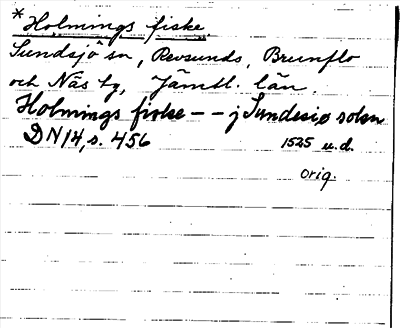 * Holmings fiske.
Sundsjö sn, Revsunds, Brunflo
och Näs tg, Jämtl. län.
Holmings fiske - - j Sundesiø sokn
DN 14, s. 456 1525 u.d.
orig.